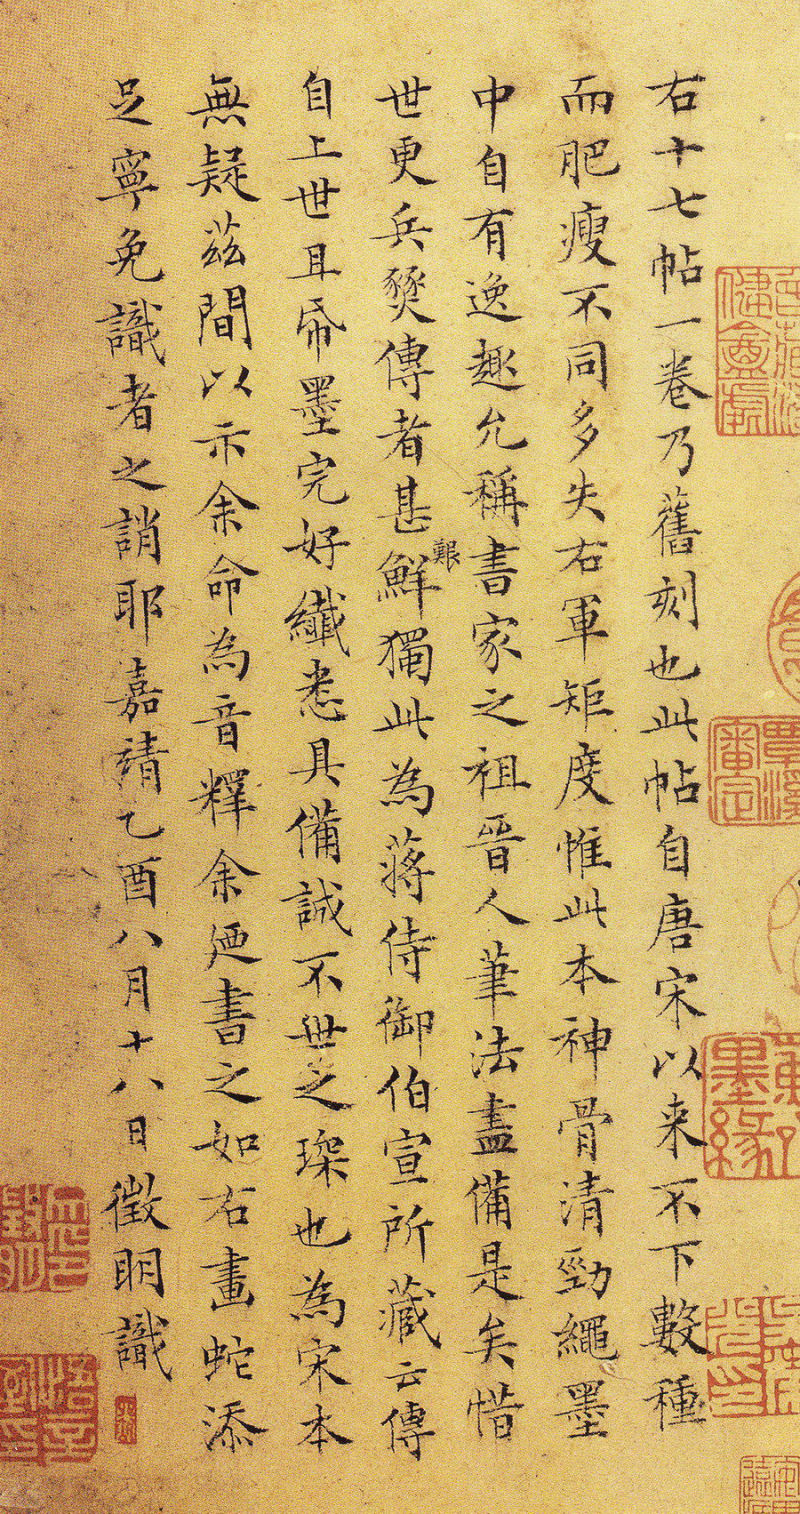 右十七帖一卷乃舊刻也此帖自唐宋以来不下數種
而肥瘦不同多失右軍矩度惟此本神骨清勁繩墨
中自有逸趣允稱書家之祖晉人筆法盡備是矣惜
世更兵燹傳者甚鮮獨此為蔣侍御伯宣所藏云傳
艱
自上世且帋墨完好纖悉具備誠不世之琛也為宋本
無疑茲間以示余命為音釋余廼書之如右畫蛇添
足寧免識者之誚耶嘉靖乙酉八月十八日徵明識
墨緣
覃溪審定